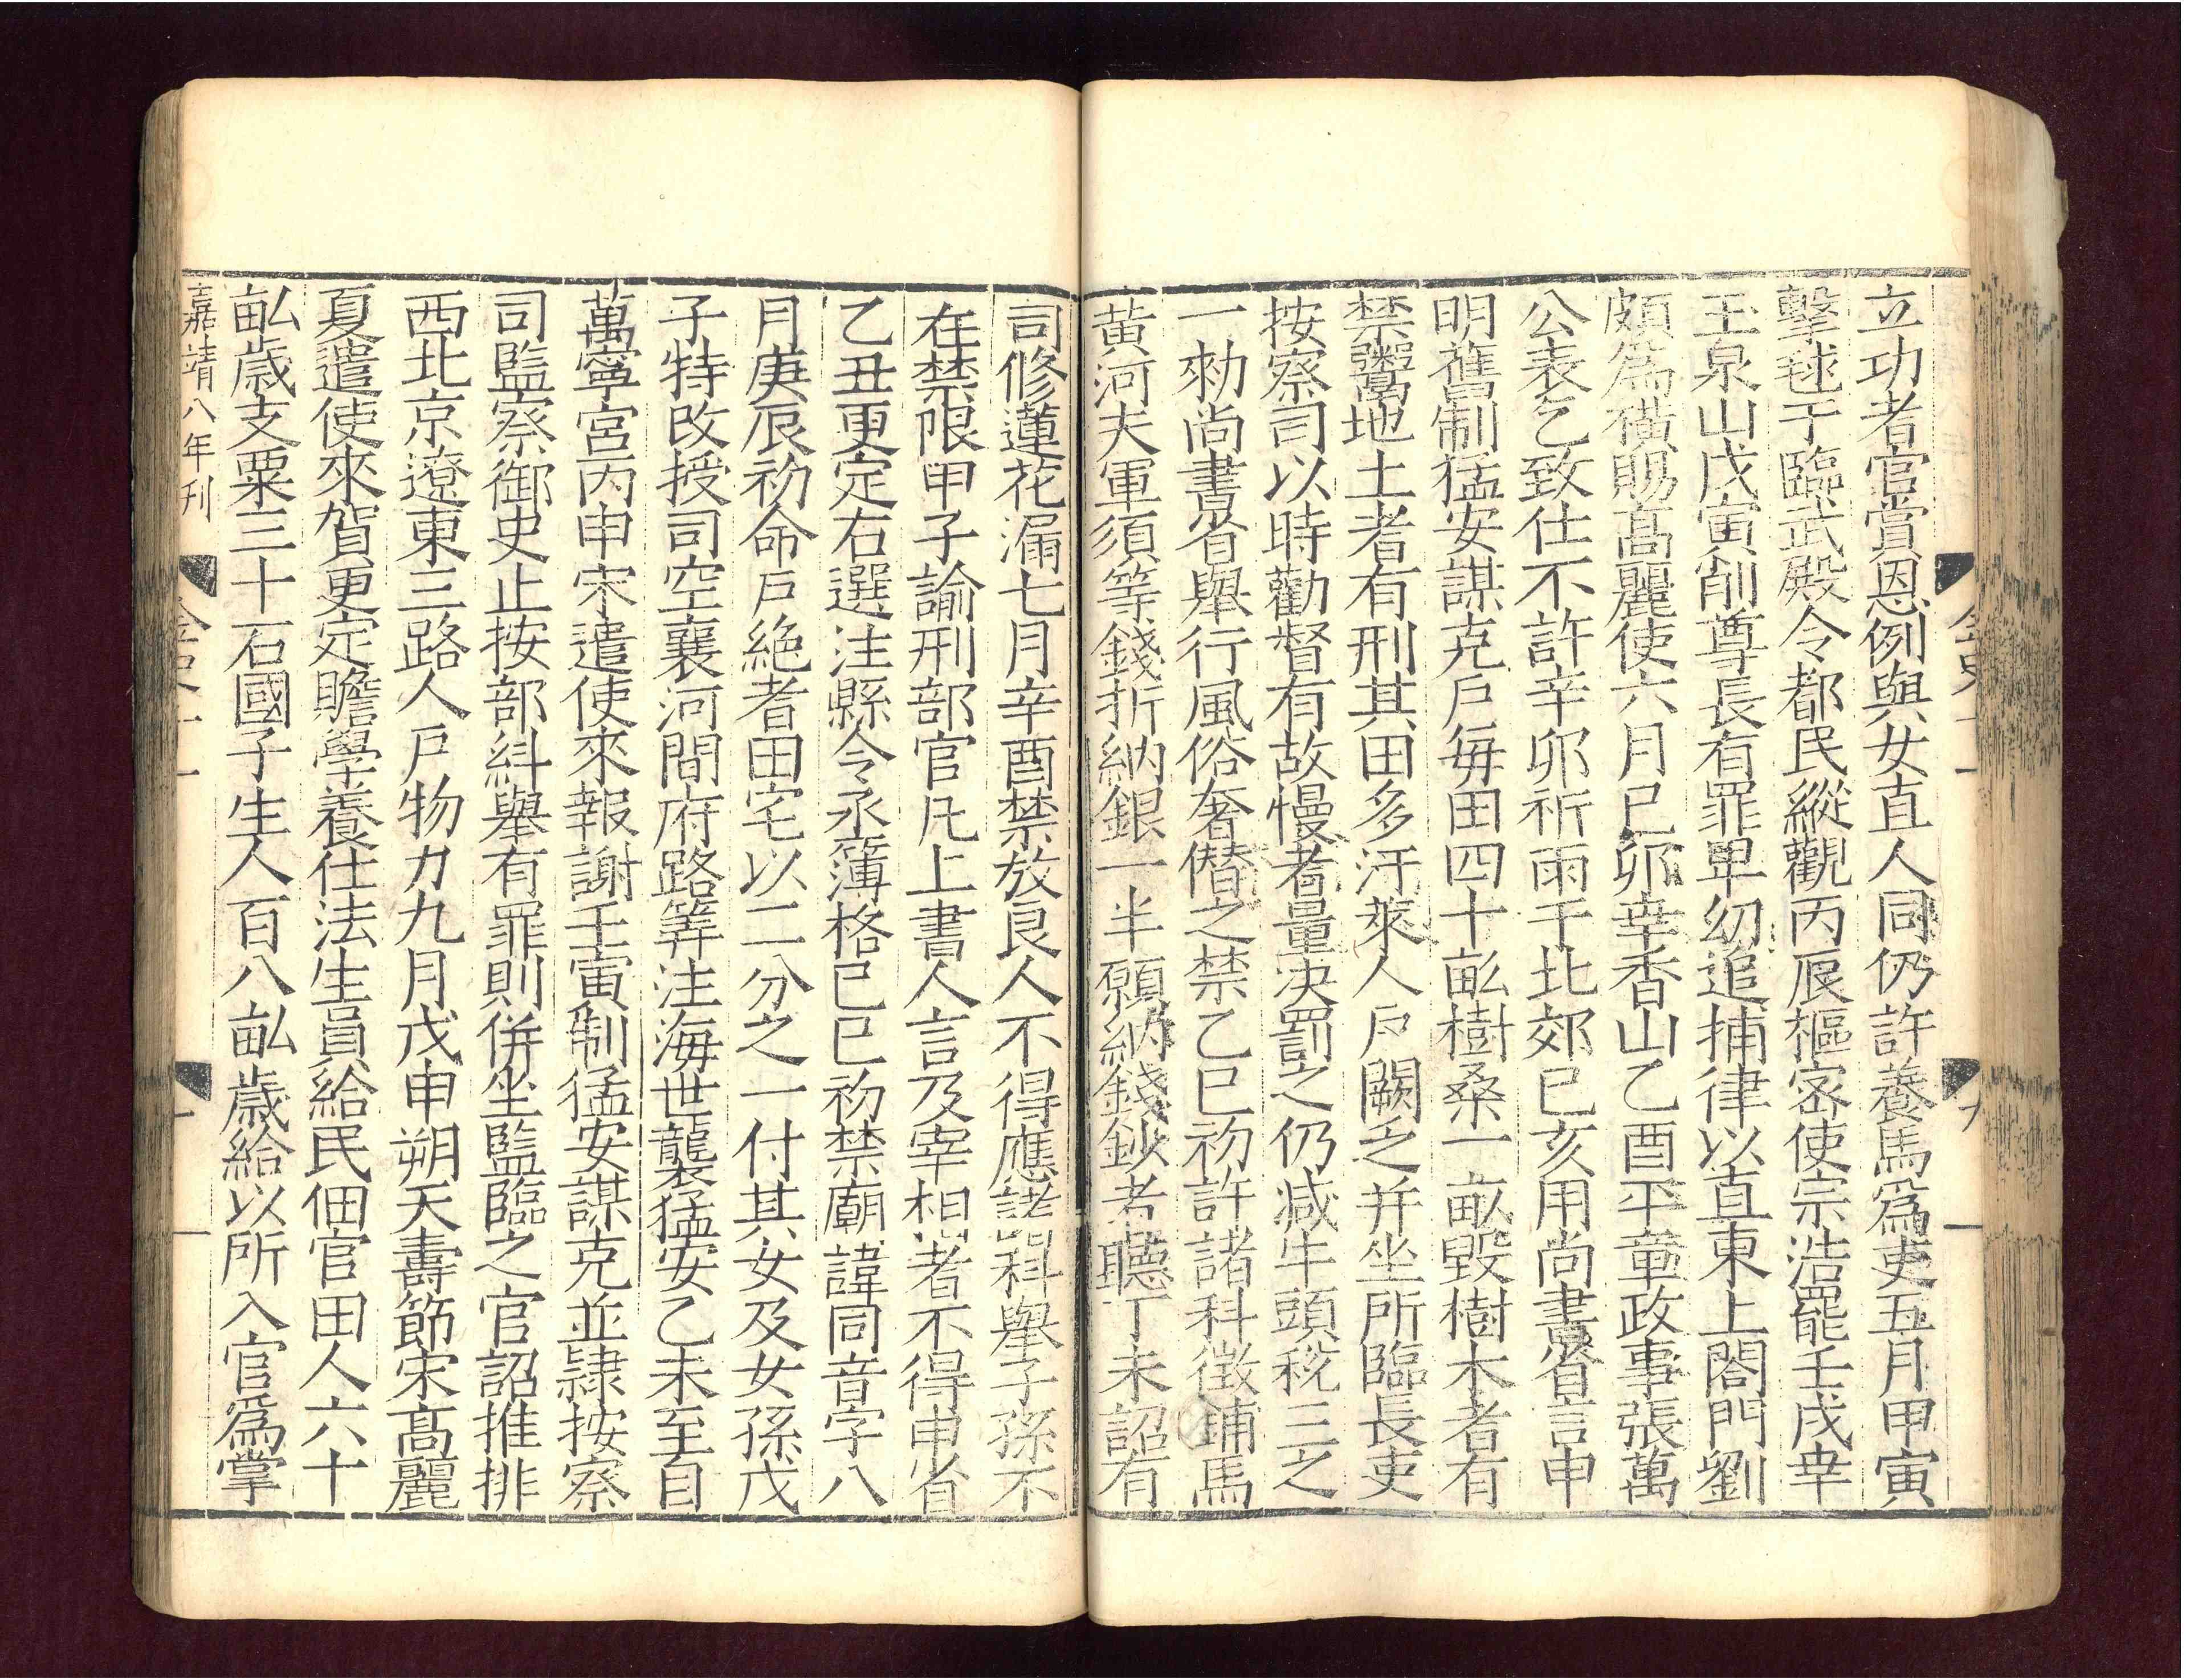 立功者官賞恩例與女直人同仍許養馬爲吏五月甲寅
擊毬于臨武殿令都民縱觀丙辰樞密使宗浩罷壬戌幸
玉泉山戊寅削尊長有罪卑幼追捕律以直東上閤門劉
頗爲橫賜高麗使六月己卯幸香山乙酉平章政事張萬
公表乞致仕不許辛卯祈雨于北郊已亥用尚書省言申
明舊制猛安謀克戶每田四十畝樹桑一畝毀樹木者有
禁鬻地土者有刑其田多汙萊人戶闕乏并坐所臨長吏
按察司以時勸督有故慢者量決罰之仍減牛頭稅三之
一勑尚書省舉行風俗奢僭之禁乙巳初許諸科徵鋪馬
黃河夫軍須等錢折納銀一半願納錢鈔者聽丁未詔有
金史十一
九
司修蓮花漏七月辛酉禁放良人不得應諸科舉子孫不
在禁限甲子諭刑部官凡上書人言及宰相者不得申省
乙丑更定右選注縣令丞簿格己巳初禁廟諱同音字八
月庚辰初命戶絕者田宅以二分之一付其女及女孫戊
子特改授司空襄河間府路筭注海世襲猛安乙未至自
萬寧宮丙申宋遣使來報謝壬寅制猛安謀克並隷按察
司監察御史止按部糾舉有罪則併坐監臨之官詔推排
西北京遼東三路人戶物力九月戊申朔天壽節宋高麗
夏遣使來賀更定贍學養仕法生員給民佃官田人六十
畝歲支粟三十石國子生人百八畝歲給以所入官爲掌
嘉靖八年刊
金史十一